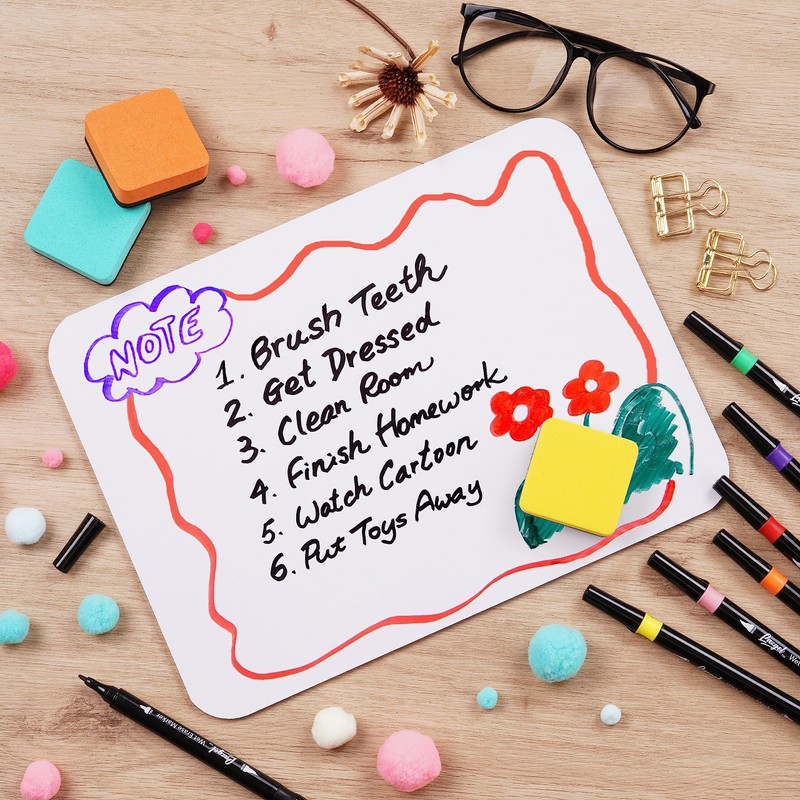 NOTE
1. Brush Teeth
2. Get Dressed
3. Clean Room
4. Finish Homework
5. Watch Cartoon
6. Put Toys Away
Wet Erase Marker